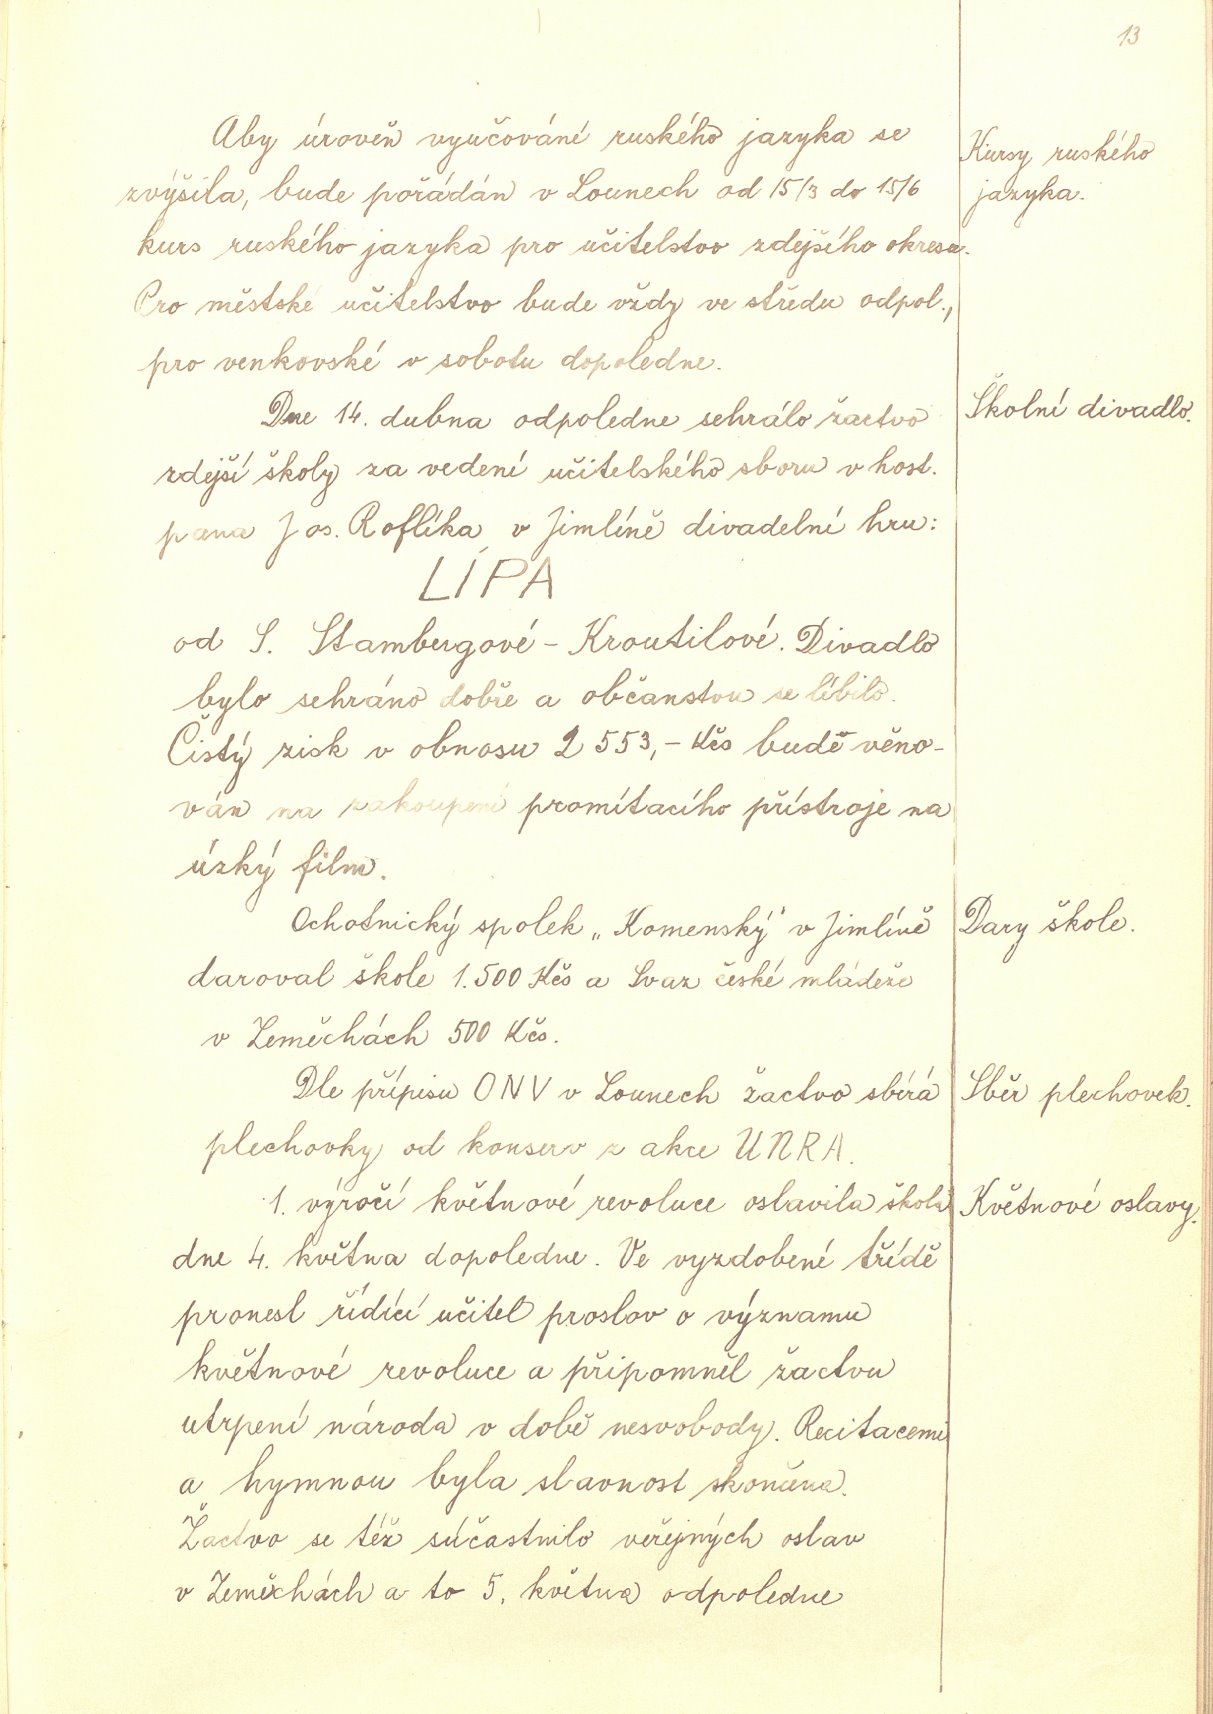 13
Aby úroveň vyučováné ruského jazyka se
Kursy ruského
zvýšila, bude pořádán v Lounech od 15/3 do 15/6
jazyka.
kurs ruského jazyka pro učitelstvo zdejšího okresu.
Pro městské učitelstvo bude vždy ve středu odpol.,
pro venkovské v sobotu dopoledne.
Dne 14. dubna odpoledne sehrálo žactvo
Školní divadlo.
zdejší školy za vedení učitelského sboru v host.
pana Jos. Roflíka v Jimlíně divadelní hru:
LÍPA
od S. Štambergové - Kroutilové. Divadlo
bylo sehráno dobře a občanstvu se líbilo.
Čistý zisk v obnosu 2 553,- Kčs bude věno-
ván na zakoupení promítacího přístroje na
úzký film.
Ochotnický spolek „Komenský" v Jimlíně
Dary škole.
daroval škole 1.500 Kčs a Svaz české mládeže
v Zeměchách 500 Kčs.
Dle přípisu ONV v Lounech žactvo sbírá
Sběr plechovek.
plechovky od konserv z akce UNRA.
1. výročí květnové revoluce oslavila škola
Květnové oslavy.
dne 4. května dopoledne. Ve vyzdobené třídě
pronesl řídící učitel proslov o významu
květnové revoluce a připomněl žactvu
utrpení národa v době nesvobody. Recitacemi
a hymnou byla slavnost skončena.
Žactvo se též súčastnilo veřejných oslav
v Zeměchách a to 5. května odpoledne